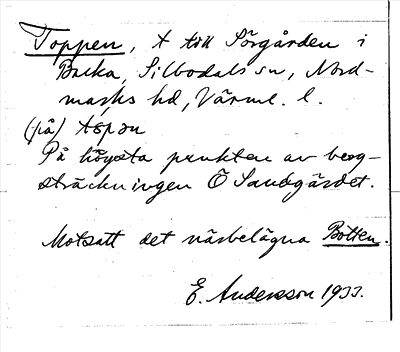 Toppen, t till Sörgården i
Backa, Silbodals sn, Nord-
marks hd, Värml. l.
(på)
På högsta punkten av berg-
sträckningen Ö Sandgärdet.
Motsatt det närbelägna Botten.
E. Andersson 1933.